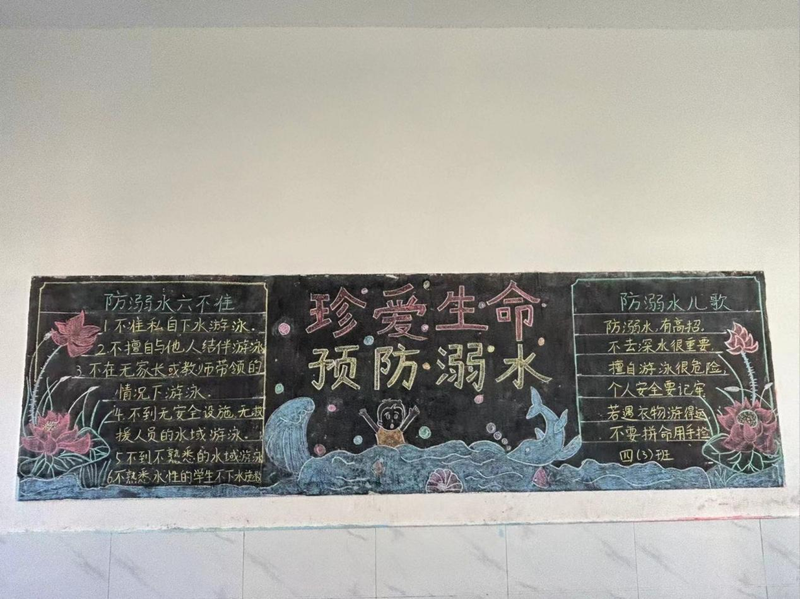 防溺水六不准
1.不准私自下水游泳.
2.不擅自与他人结伴游泳
3.不在无家长或教师带领的
情况下游泳.
4.不到无安全设施,无救
援人员的水域游泳.
5不到不熟悉的水域游泳
6.不熟悉水性的学生不下水
珍爱生命
预防溺水
防溺水儿歌
防溺水,有高招.
不去深水很重要
擅自游泳很危险,
个人安全要记牢
若遇衣物
不要拼命用手
四(3)班